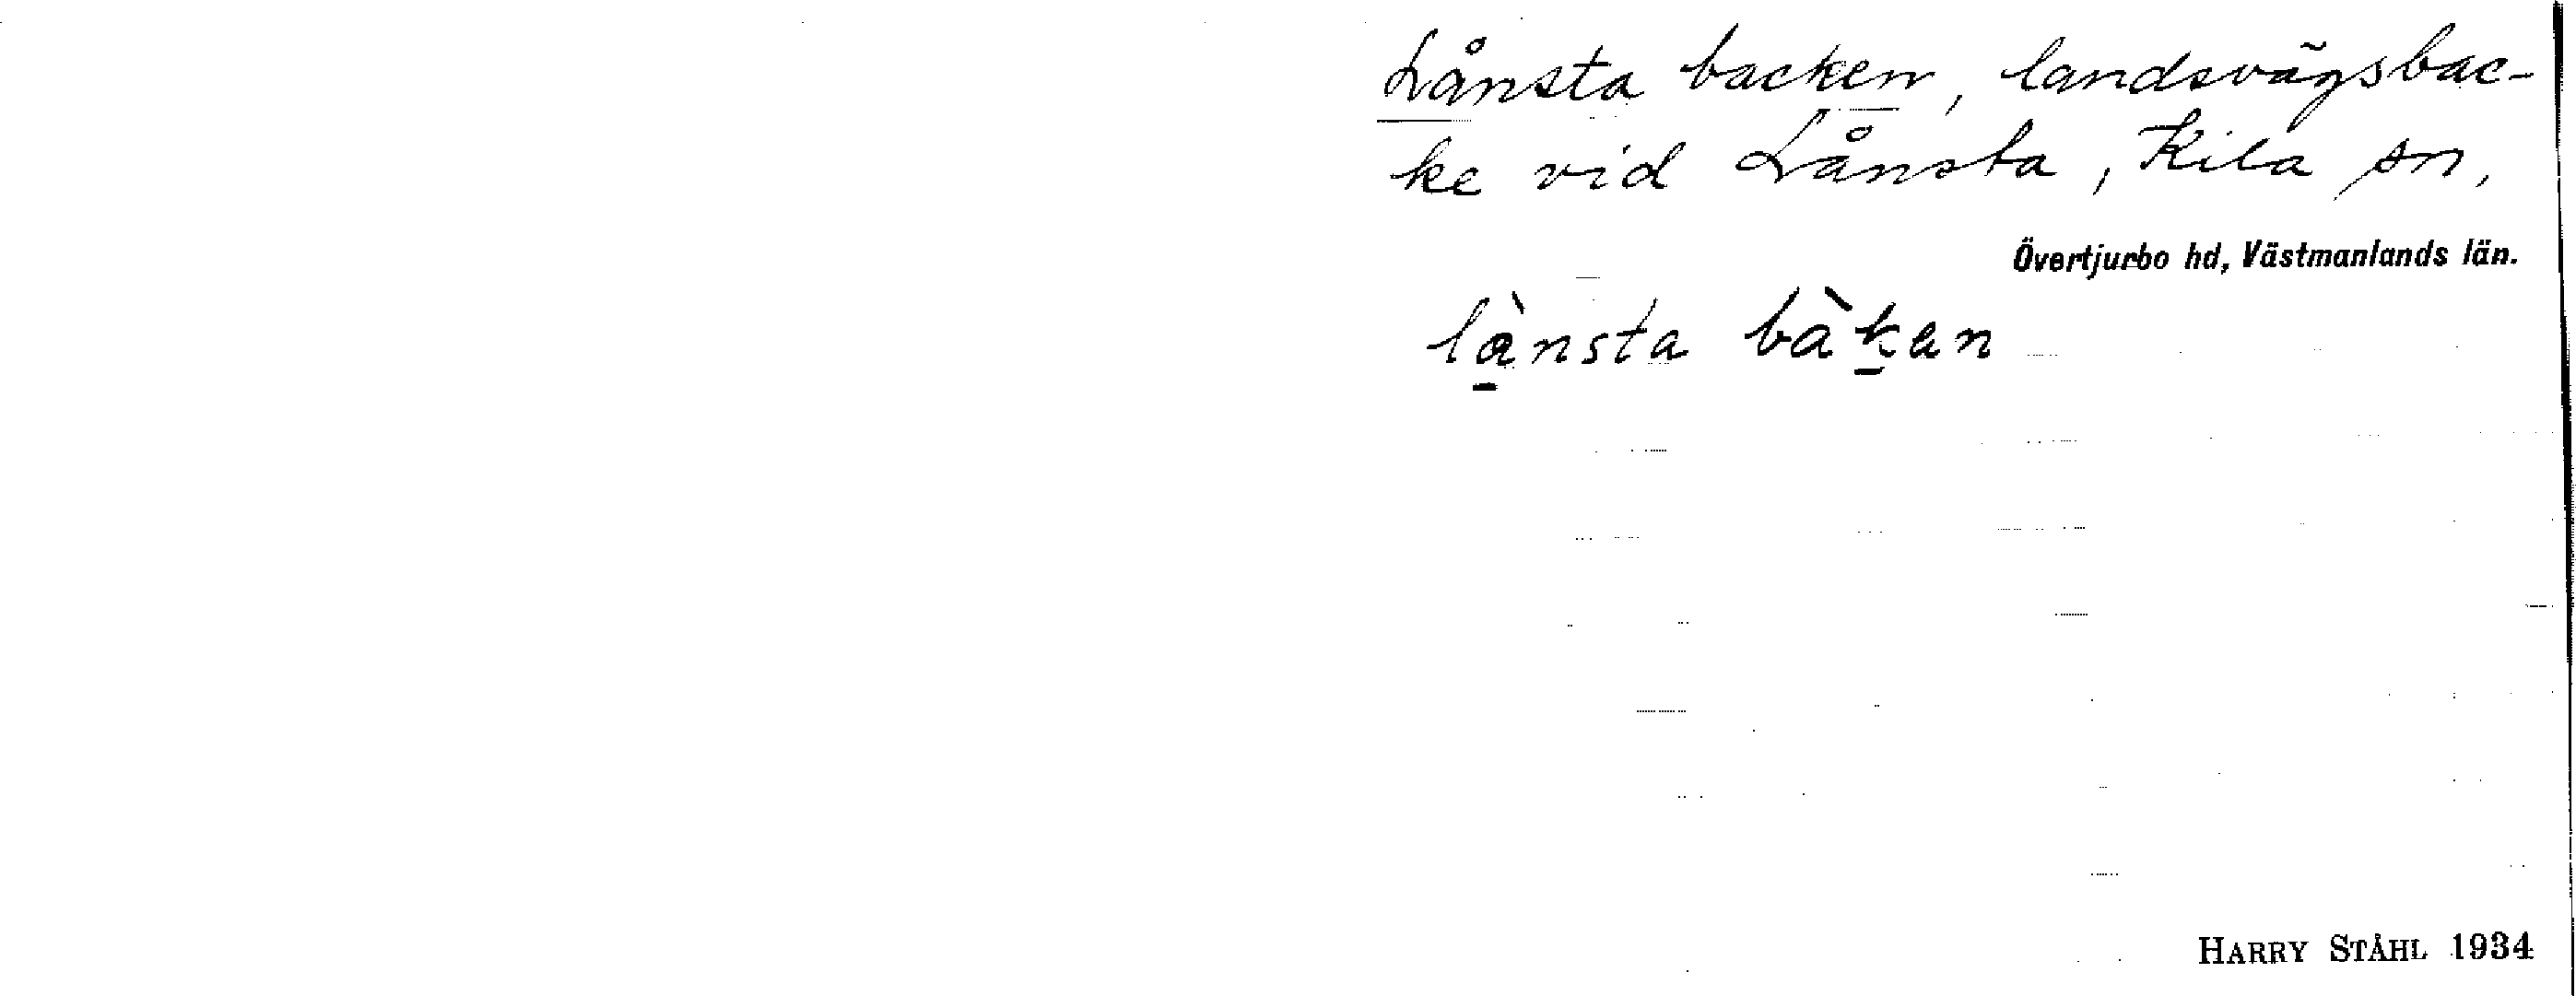 Långsta backen, landsvägsbac-
ke vid Lånsta, Kila sn,
Övertjurbo hd, Västmanlands län.
lànsta bàkan
HARRY STÅHL 1934